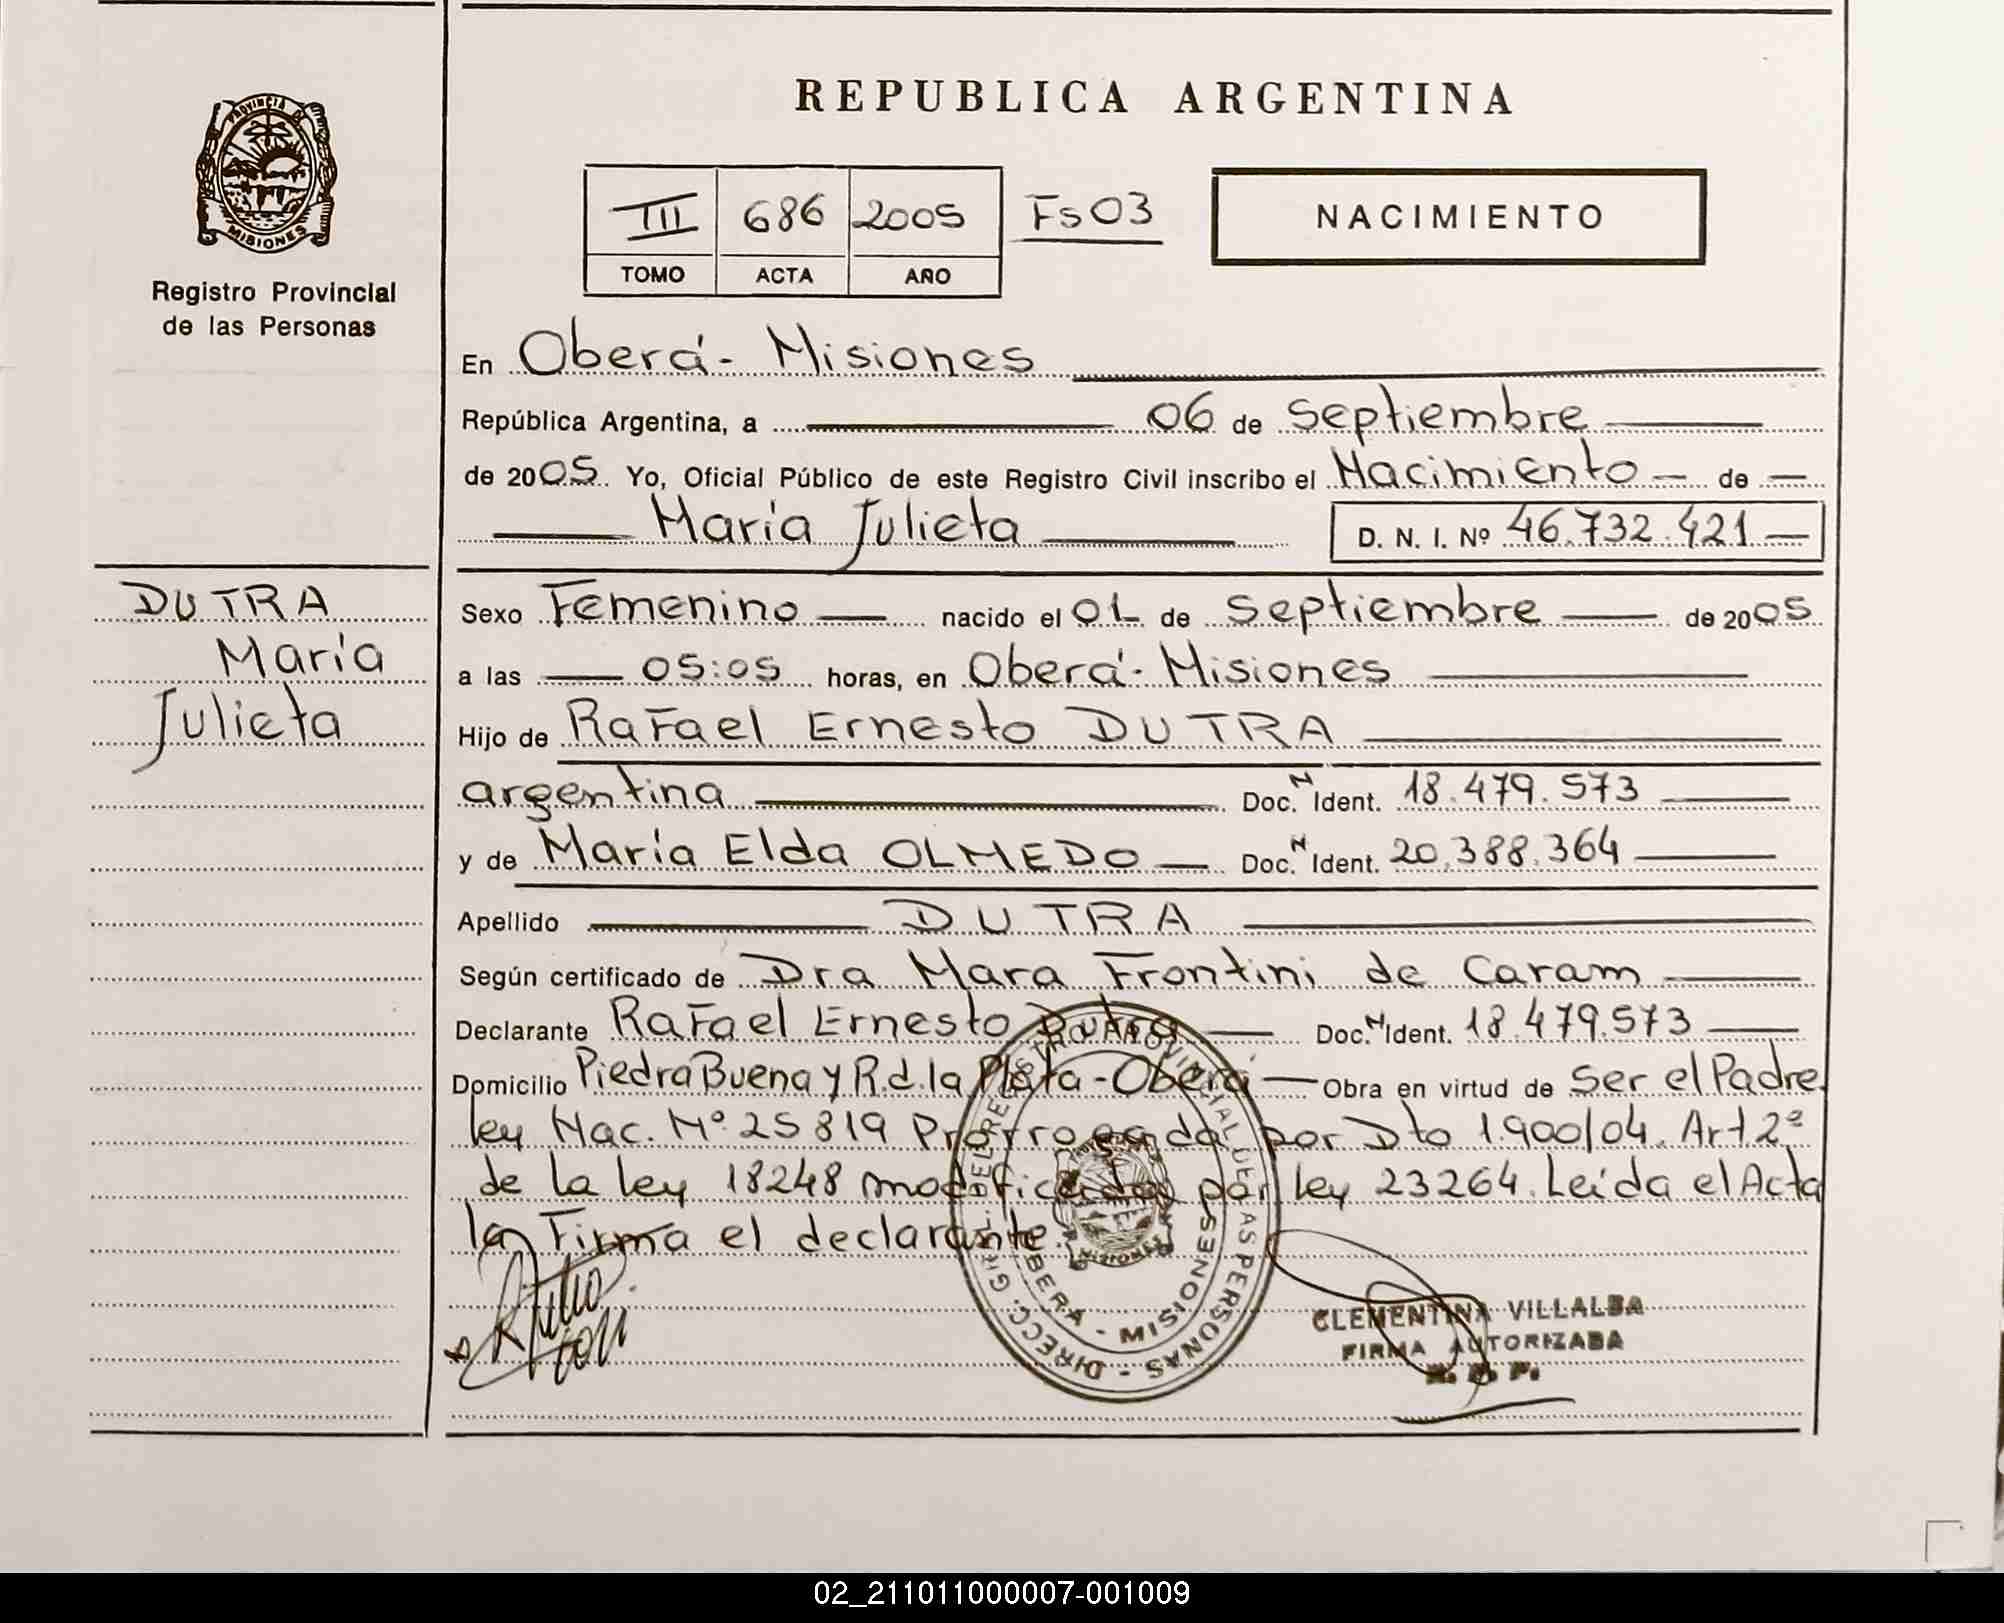 REPUBLICA ARGENTINA
PROVINCIA DE
MISIONES
Registro Provincial
de las Personas
III 686 2005 Fs03
TOMO ACTA AÑO
NACIMIENTO
En Oberá - Misiones
República Argentina, a 06 de Septiembre
de 2005. Yo, Oficial Público de este Registro Civil inscribo el Nacimiento de
María Julieta D. N. I. Nº 46.732.421
DUTRA
María
Julieta
Sexo Femenino nacido el 01 de Septiembre de 2005
a las 05:05 horas, en Oberá - Misiones
Hijo de Rafael Ernesto DUTRA
argentina Doc. N Ident. 18.479.573
y de María Elda OLMEDO Doc. N Ident. 20.388.364
Apellido DUTRA
Según certificado de Dra Mara Frontini de Caram
Declarante Rafael Ernesto Dutra Doc. N Ident. 18.479.573
Domicilio Piedra Buena y R.d.la Plata - Oberá Obra en virtud de Ser el Padre
ley Nac. Nº 25819 Prorrogada por Dto 1.900/04. Art 2º
de la ley 18248 modificada por ley 23264. Leída el Acta
la Firma el declarante.
DIRECC. GRAL. DEL REGISTRO PROVINCIAL DE LAS PERSONAS -
OBERA - MISIONES
MISIONES
CLEMENTINA VILLALBA
FIRMA AUTORIZADA
02_211011000007-001009